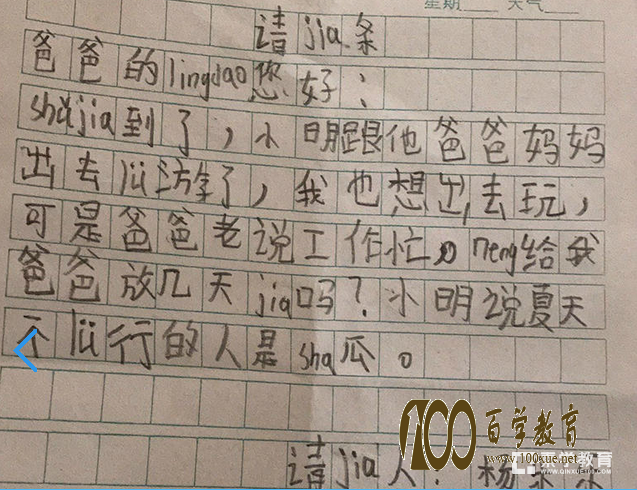 星期 天气
请jia条
爸爸的lingdao您好：
shǔjia到了，小明跟他爸爸妈妈
出去lü游拿了，我也想出去玩，
可是爸爸老说工作忙。neng给我
爸爸放几天jia吗？小明说夏天
不lü行的人是sha瓜。
100百学教育
www.100xue.net
QINXUE100.COM
请jia人：杨